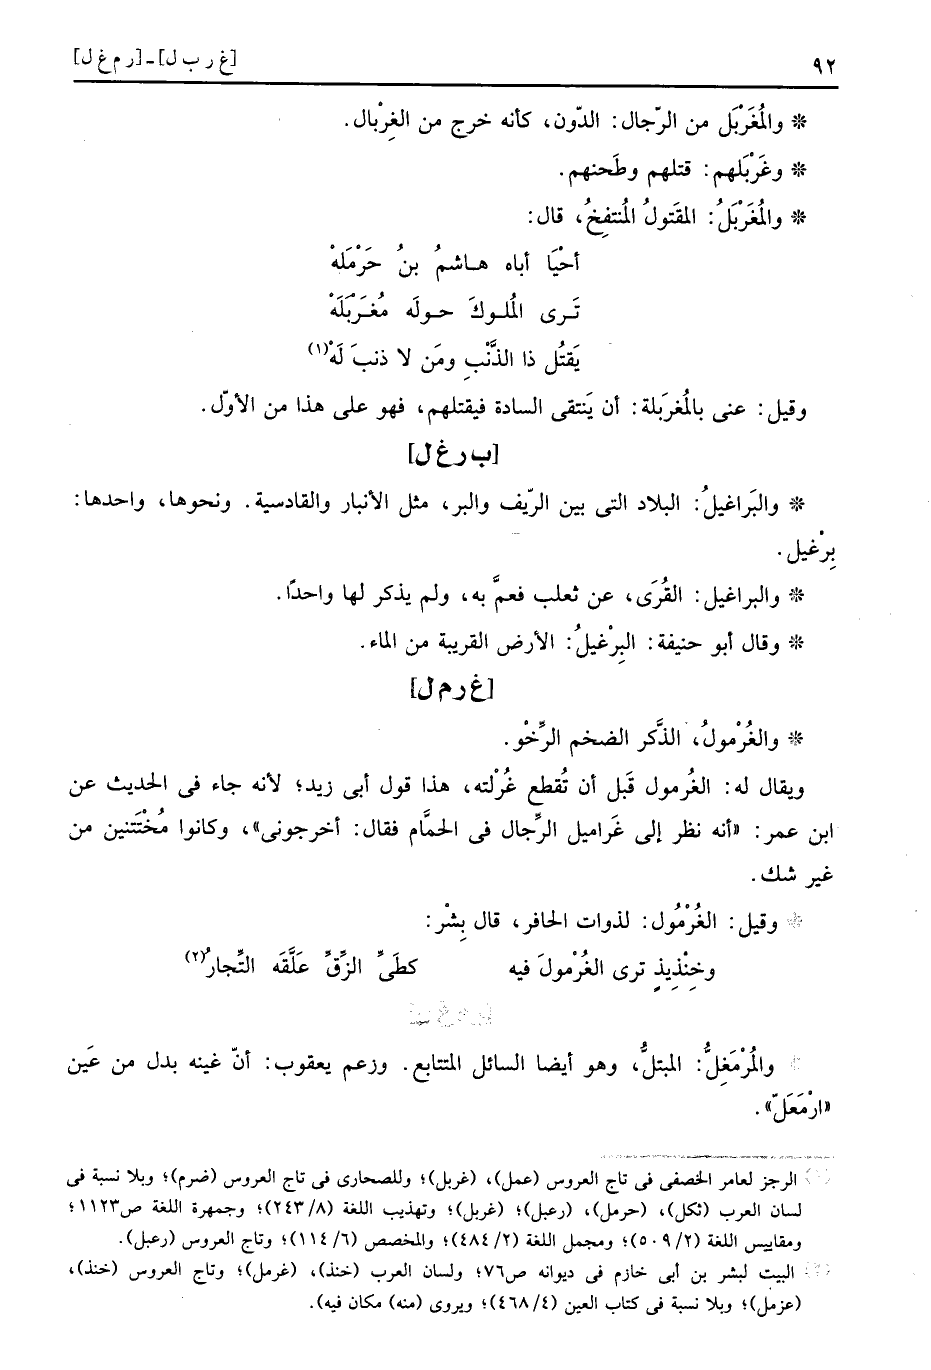 ٩٢ [غ ر ب ل] - [ر م غ ل]
* والمُغَرْبَل من الرّجال: الدّون، كأنه خرج من الغِرْبال.
* وغَرْبَلهم: قتلهم وطَحنهم.
* والمُغَرْبَلُ: المقَتولُ المُنتفِخُ، قال:
أحْيَا أباه هاشمُ بنُ حَرْمَلهْ
تَرى المُلوكَ حولَه مُغَرْبَلَهْ
يَقتُل ذا الذَّنْبِ ومَن لا ذنبَ لَهْ(١)
وقيل: عنى بالمُغربَلة: أن يَنتقى السادة فيقتلهم، فهو على هذا من الأوّل.
[ب ر غ ل]
* والبَراغيلُ: البلاد التى بين الرّيف والبر، مثل الأنبار والقادسية. ونحوها، واحدها:
بِرْغيل.
* والبراغيل: القُرَى، عن ثعلب فعمَّ به، ولم يذكر لها واحدًا.
* وقال أبو حنيفة: البِرْغيلُ: الأرض القريبة من الماء.
[غ ر م ل]
* والغُرْمولُ، الذَّكر الضخم الرِّخْو.
ويقال له: الغُرمول قَبل أن تُقطع غُرْلته، هذا قول أبى زيد؛ لأنه جاء فى الحديث عن
ابن عمر: «أنه نظر إلى غَراميل الرِّجال فى الحمَّام فقال: أخرجونى»، وكانوا مُخْتَتنين من
غير شك.
* وقيل: الغُرْمُول: لذوات الحافر، قال بِشْر:
وخِنْذِيذٍ ترى الغُرْمولَ فيه كطَىِّ الزِّقِّ عَلَّقَه التِّجارُ(٢)
[ر م غ ل]
* والمُرْمَغِلُّ: المبتلُّ، وهو أيضا السائل المتتابع. وزعم يعقوب: أنّ غينه بدل من عَين
«ارْمَعَلّ».
(١) الرجز لعامر الخصفى فى تاج العروس (عمل)، (غربل)؛ وللصحارى فى تاج العروس (ضرم)؛ وبلا نسبة فى
لسان العرب (ثكل)، (حرمل)، (رعبل)؛ (غربل)؛ وتهذيب اللغة (٢٤٣/٨)؛ وجمهرة اللغة ص١١٢٣؛
ومقاييس اللغة (٥٠٩/٢)؛ ومجمل اللغة (٤٨٤/٢)؛ والمخصص (١١٤/٦)؛ وتاج العروس (رعبل).
(٢) البيت لبشر بن أبى خازم فى ديوانه ص٧٦؛ ولسان العرب (خنذ)، (غرمل)؛ وتاج العروس (خنذ)،
(عزمل)؛ وبلا نسبة فى كتاب العين (٤٦٨/٤)؛ ويروى (منه) مكان فيه).